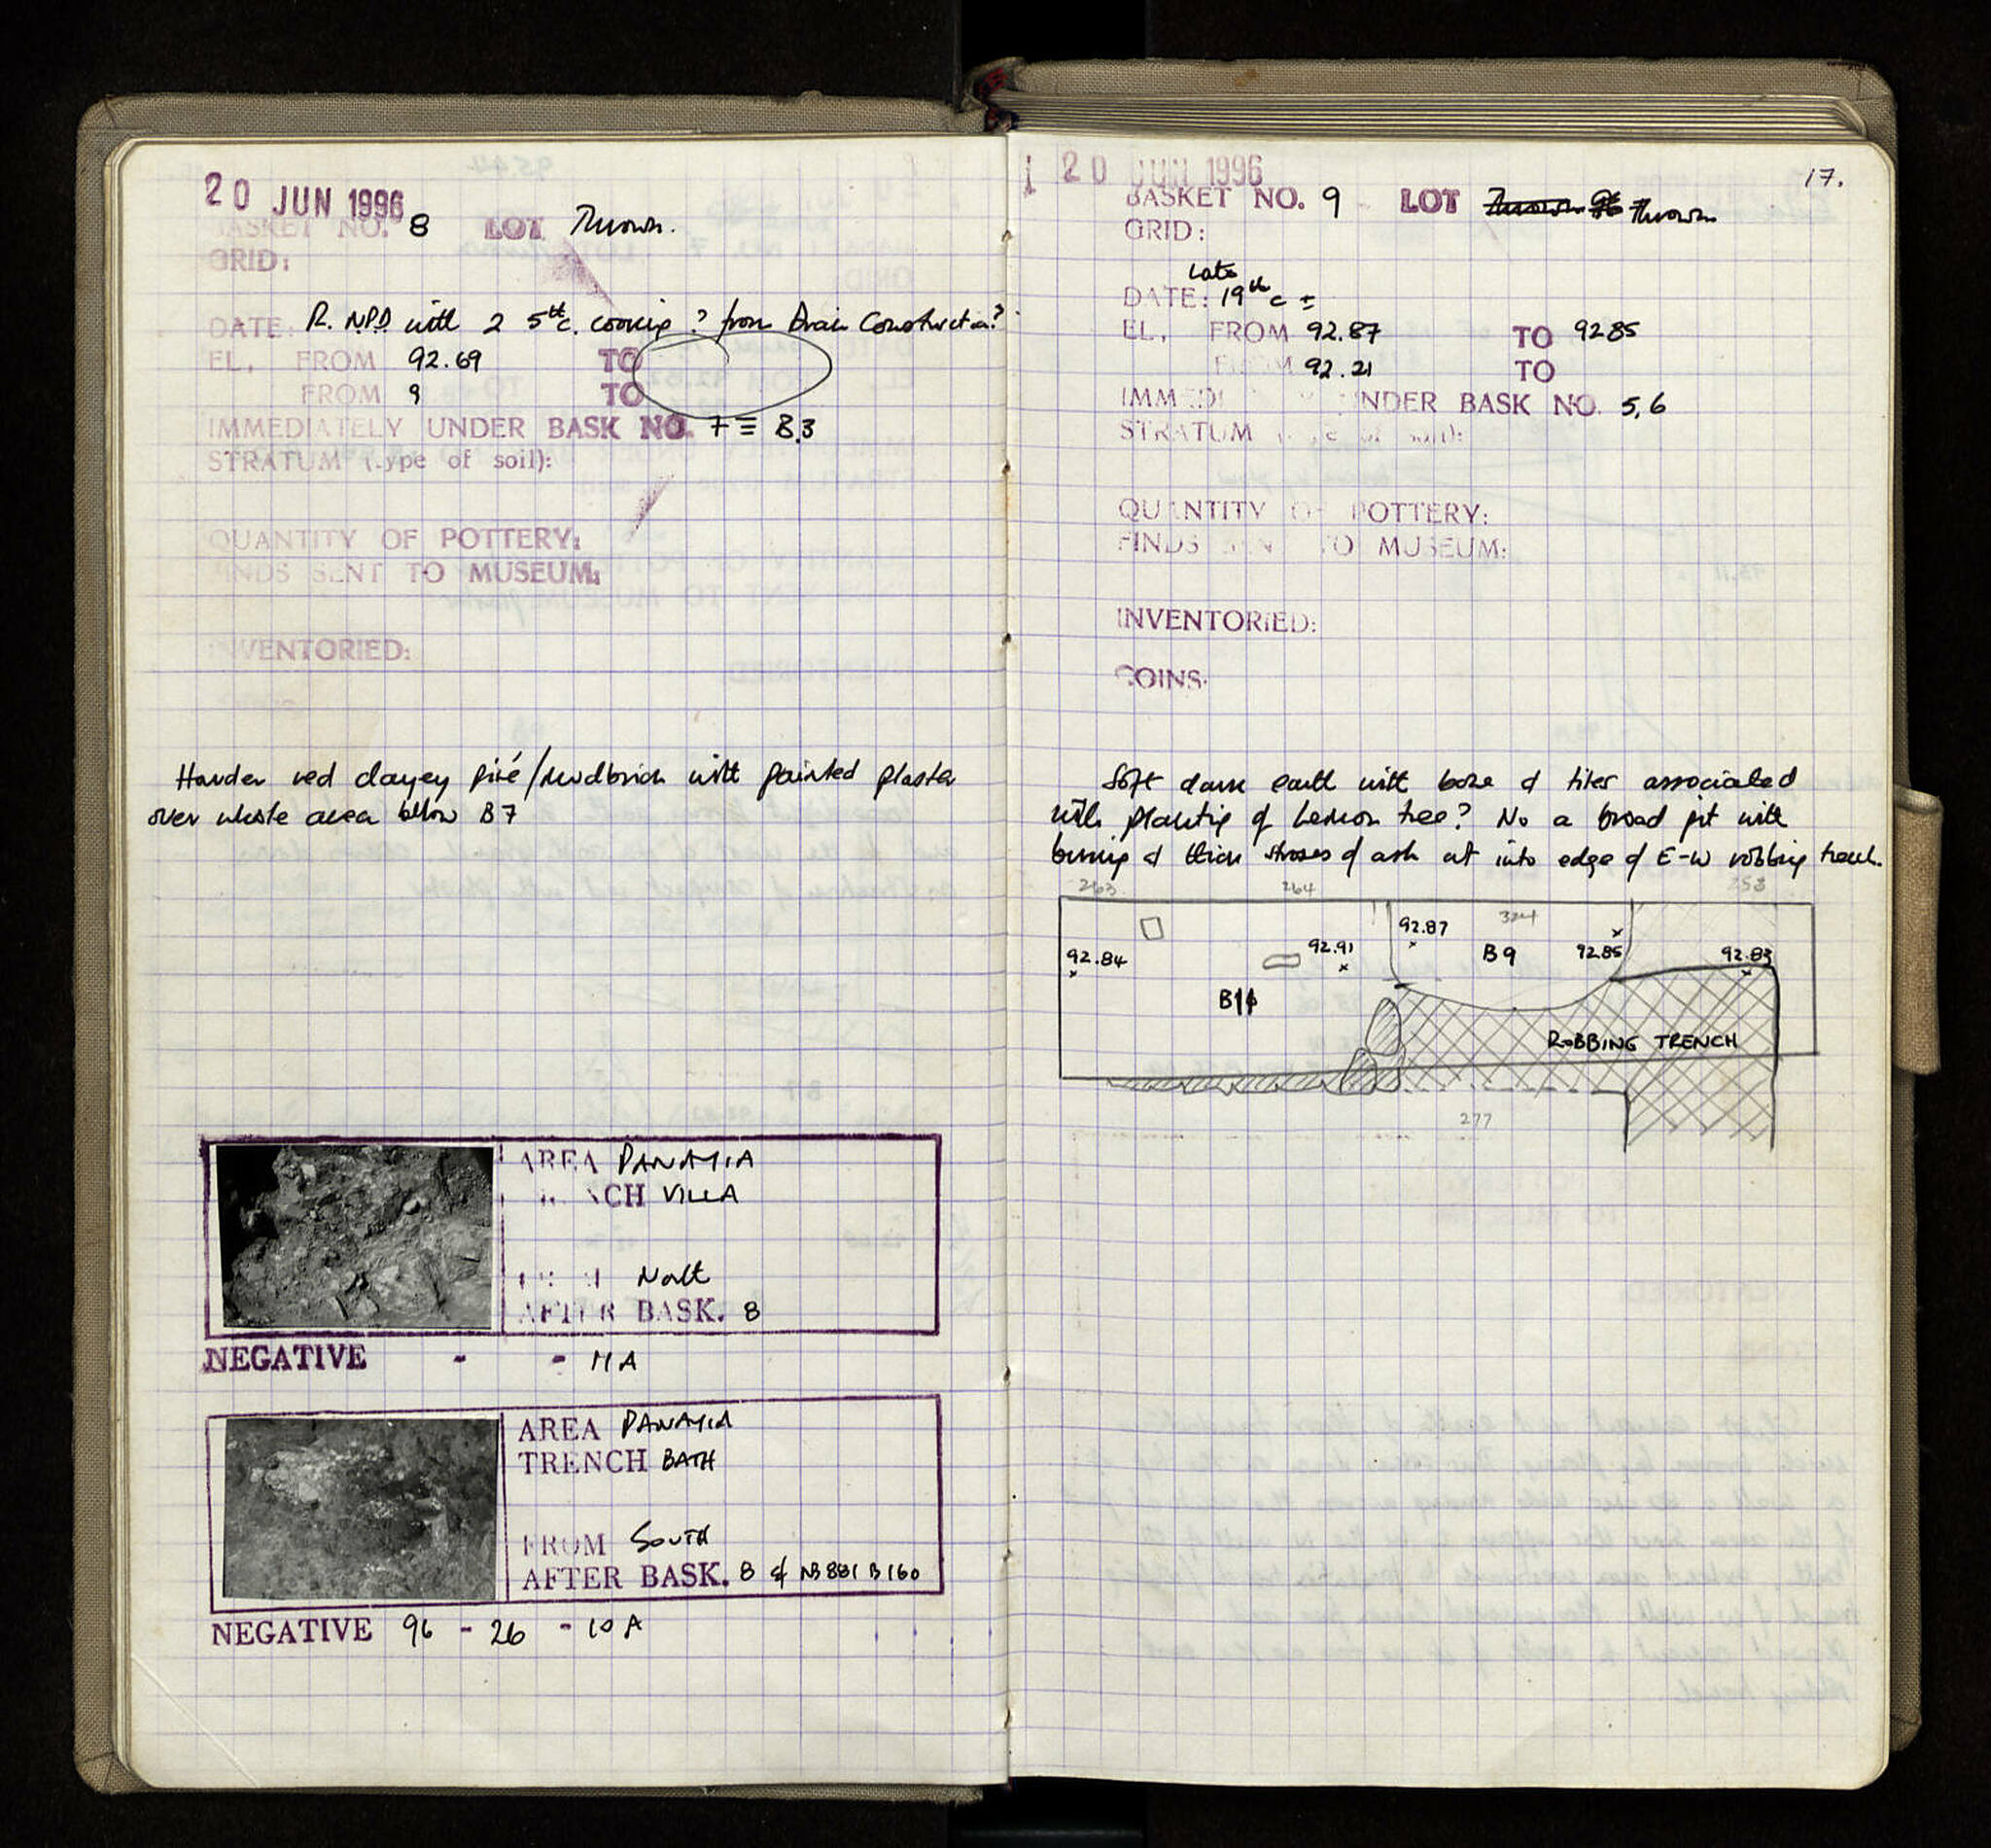 20 JUN 1996
BASKET NO. 8 LOT Thrown.
GRID:
DATE: R. NPD with 2 5th c. cooking ? from Drain Construction?
EL, FROM 92.69 TO
FROM 9 TO
IMMEDIATELY UNDER BASK NO. 7 ≡ B.3
STRATUM (type of soil):
QUANTITY OF POTTERY:
FINDS SENT TO MUSEUM:
INVENTORIED:
Harder red clayey pisé/mudbrick with painted plaster
over whole area below B7
AREA PANAYIA
TRENCH VILLA
FROM North
AFTER BASK. 8
NEGATIVE - - 11A
AREA PANAYIA
TRENCH BATH
FROM SOUTH
AFTER BASK. 8 & NB 881 B 160
NEGATIVE 96 - 26 - 10A
20 JUN 1996
17.
BASKET NO. 9 LOT Thrown
GRID:
Late
DATE: 19th c ±
EL, FROM 92.87 TO 92.85
FROM 92.21 TO
IMMEDIATELY UNDER BASK NO. 5,6
STRATUM (type of soil):
QUANTITY OF POTTERY:
FINDS SENT TO MUSEUM:
INVENTORIED:
COINS:
Soft dark earth with bone & tiles associated
with planting of Lemon tree? No a broad pit with
burning & thick strosis of ash cut into edge of E-W robbing trench.
263 264 258
92.87 324
92.84 92.91 B9 92.85 92.83
B11
ROBBING TRENCH
277